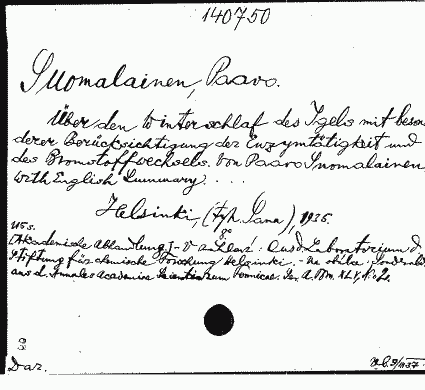 140750
Suomalainen, Paavo.
Über den Winterschlaf des Igels mit beson
derer Berücksichtigung der Enzymtätigkeit und
des Bromstoffwechsels. Von Paavo Suomalainen,
With English Summary. ...
Helsinki, (tgk. Sana), 1935.
115 s.
(Akademische Abhandlung). Aus d. Laboratorium d.
Stiftung für chemische Forschung Helsinki. - Sonderabd
aus d. Annales Academiæ Scientiarum Fennicae. Ser. A. Tom. XLV, No 2.
Dar.